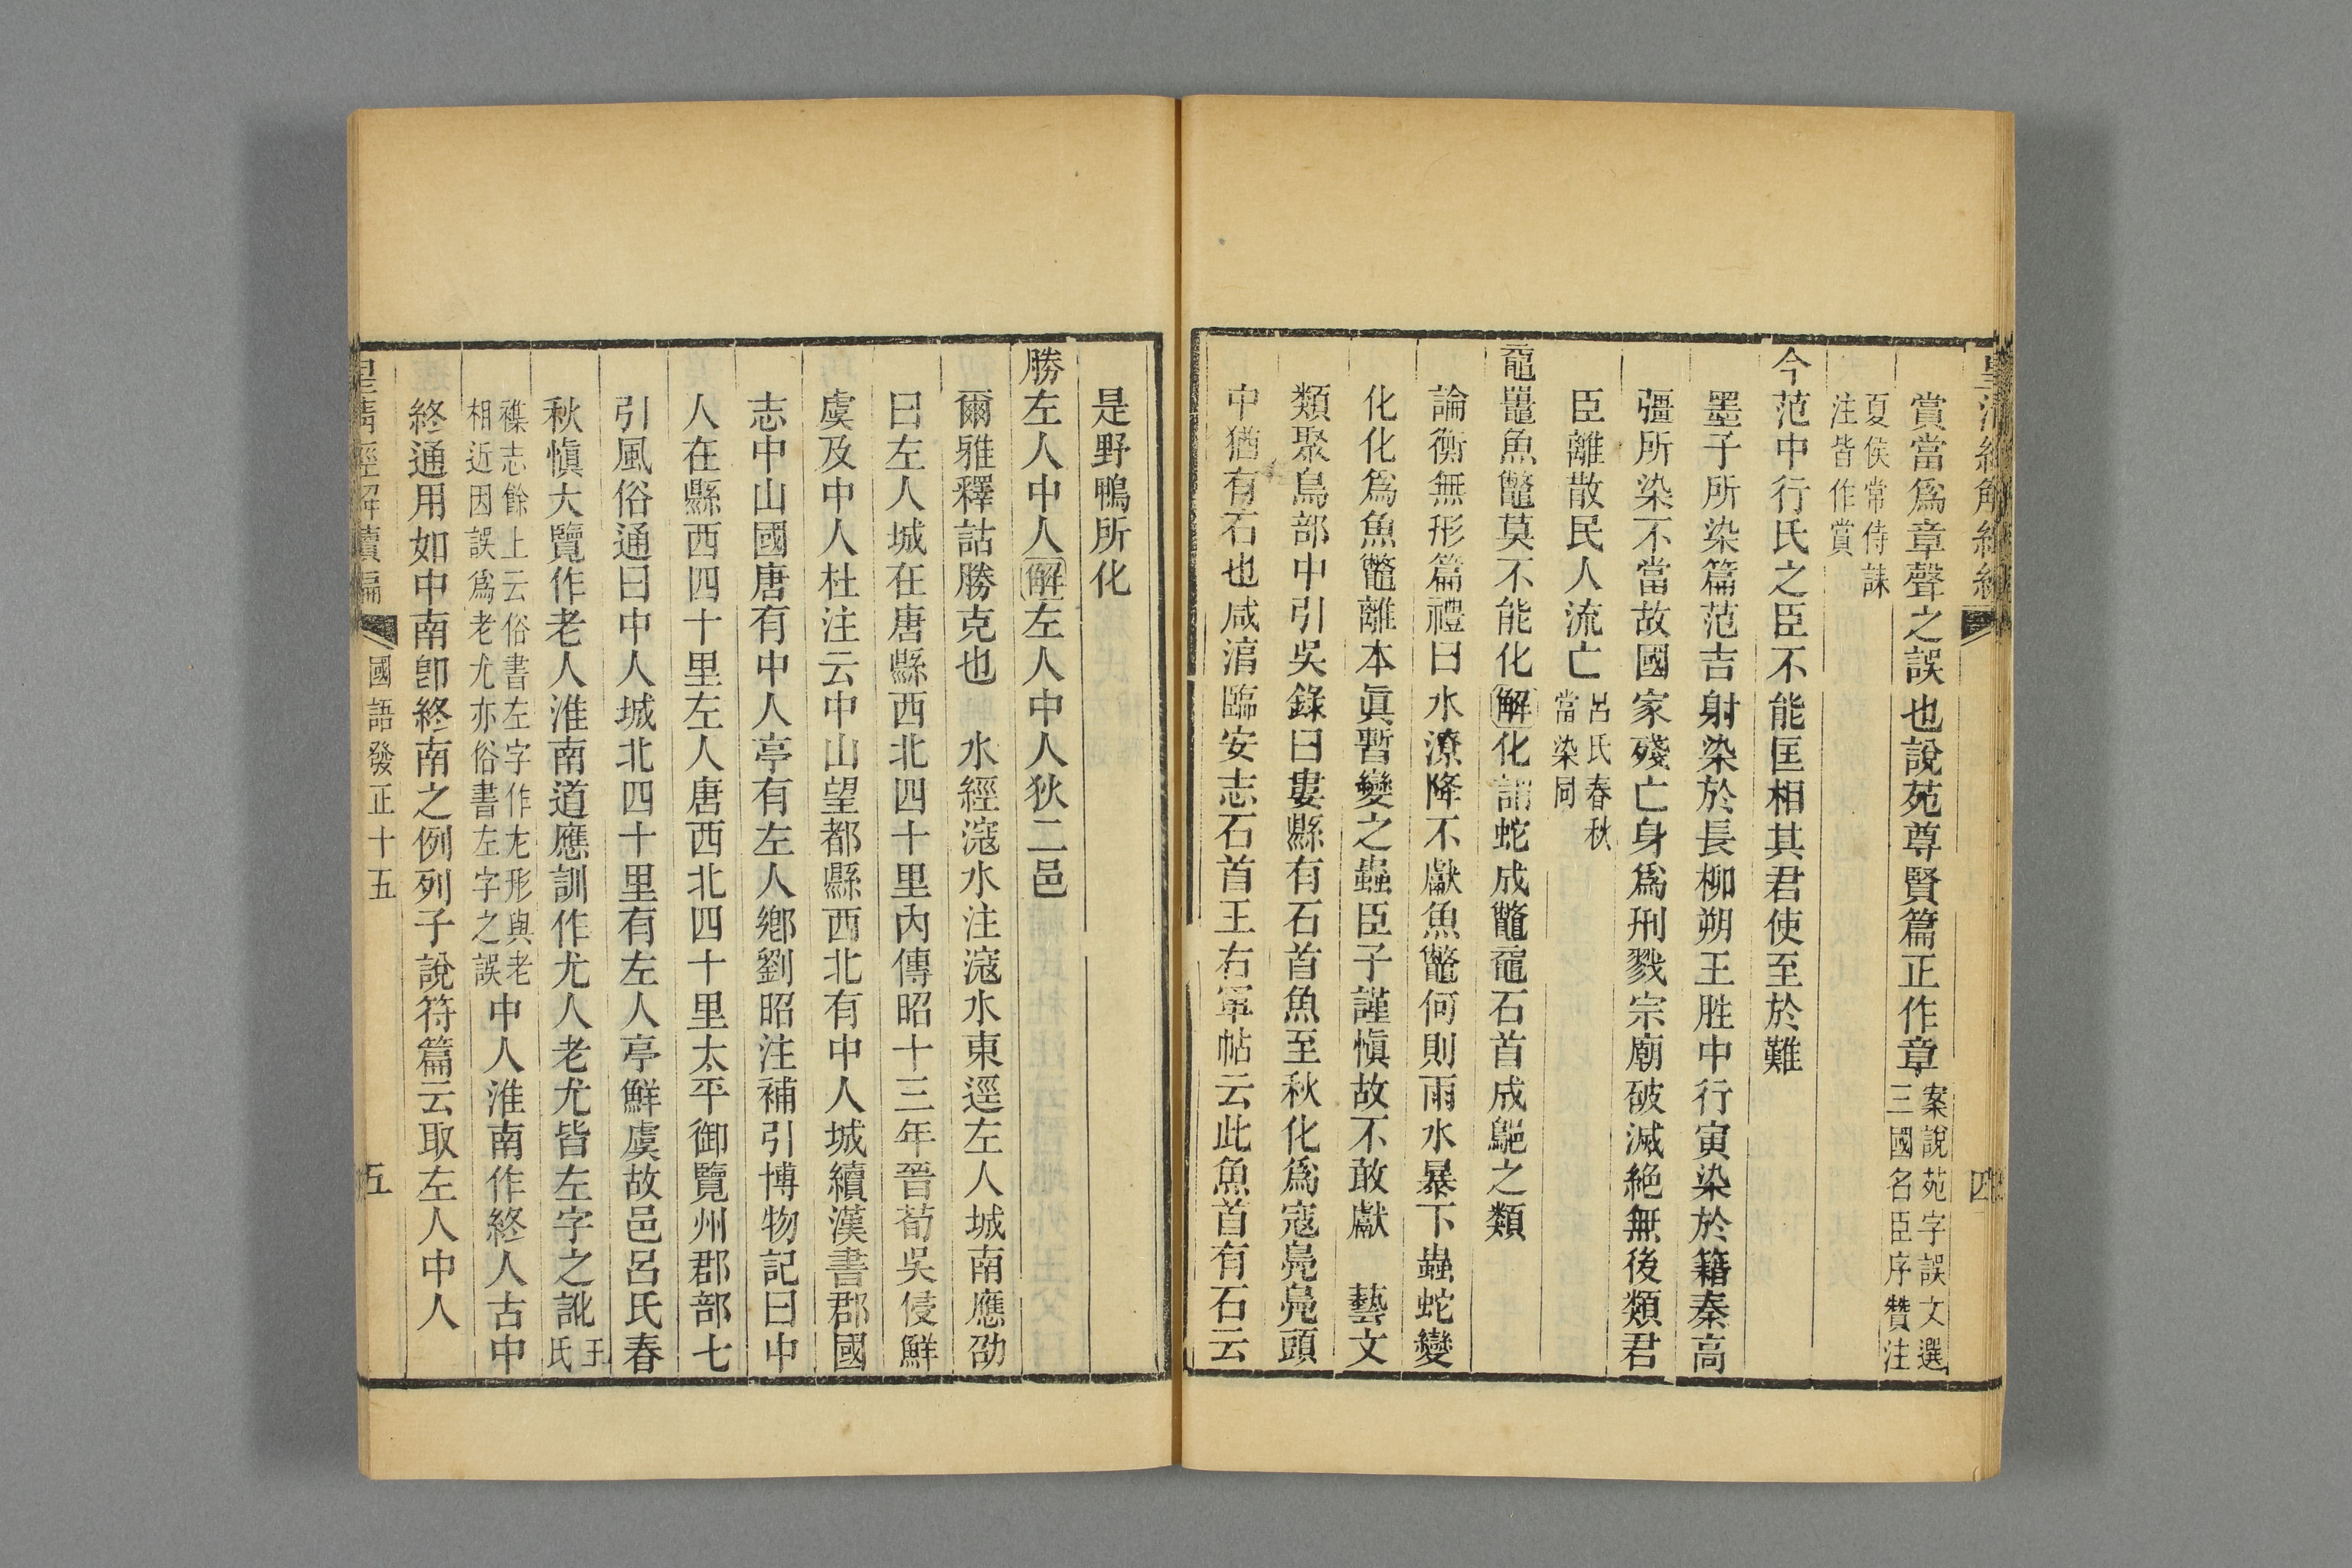 皇清經解續編
四
賞當爲章聲之誤也說苑尊賢篇正作章案說苑字誤文選三國名臣序贊注
夏侯常侍誄注皆作賞
今范中行氏之臣不能匡相其君使至於難
墨子所染篇范吉射染於長柳朔王胜中行寅染於籍秦高
彊所染不當故國家殘亡身爲刑戮宗廟破滅絕無後類君
臣離散民人流亡呂氏春秋當染同
黿鼉魚鼈莫不能化解化謂蛇成鼈黿石首成䳒之類
論衡無形篇禮曰水潦降不獻魚鼈何則雨水暴下蟲蛇變
化化爲魚鼈離本眞暫變之蟲臣子謹愼故不敢獻　藝文
類聚鳥部中引吳錄曰婁縣有石首魚至秋化爲寇鳧鳧頭
中猶有石也咸淳臨安志石首王右軍帖云此魚首有石云
是野鴨所化
勝左人中人解左人中人狄二邑
爾雅釋詁勝克也　水經滱水注滱水東逕左人城南應劭
曰左人城在唐縣西北四十里內傳昭十三年晉荀吳侵鮮
虞及中人杜注云中山望都縣西北有中人城續漢書郡國
志中山國唐有中人亭有左人鄕劉昭注補引博物記曰中
人在縣西四十里左人唐西北四十里太平御覽州郡部七
引風俗通曰中人城北四十里有左人亭鮮虞故邑呂氏春
秋愼大覽作老人淮南道應訓作尤人老尤皆左字之訛王氏
襍志餘上云俗書左字作𠂇形與老相近因誤爲老尤亦俗書左字之誤中人淮南作終人古中
終通用如中南卽終南之例列子說符篇云取左人中人
皇清經解續編
國語發正十五
五